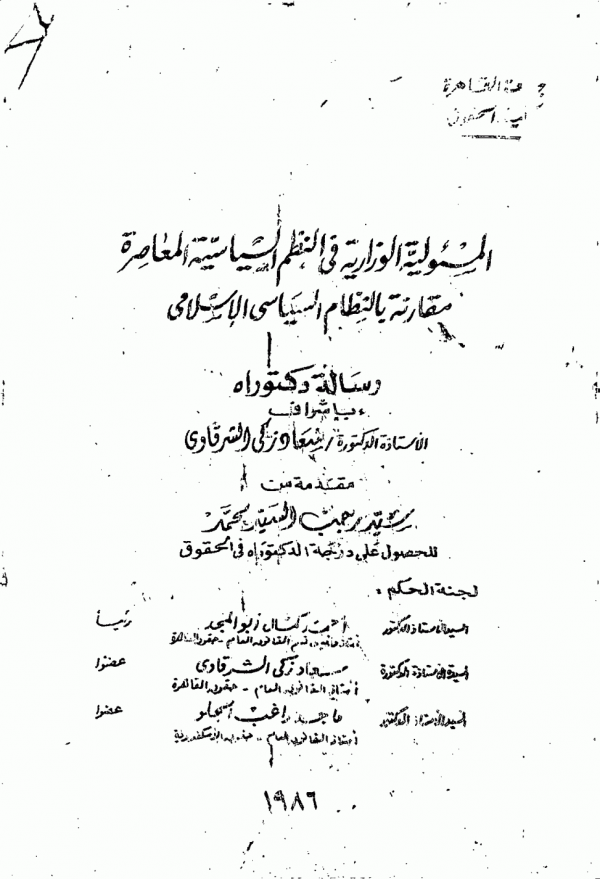 جامعة القاهرة
كلية الحقوق
المسئولية الوزارية فى النظم السياسية المعاصرة
مقارنة بالنظام السياسى الإسلامى
رسالة دكتوراه
بإشراف
الأستاذة الدكتورة / سعاد زكى الشرقاوى
مقدمة من
سيد رجب السيد محمد
للحصول على درجة الدكتوراه فى الحقوق
لجنة الحكم :
السيد الأستاذ الدكتور أحمد كمال أبو المجد رئيساً
أستاذ القانون العام - حقوق القاهرة
السيدة الأستاذة الدكتورة سعاد زكى الشرقاوى عضوا
أستاذ القانون العام - حقوق القاهرة
السيد الأستاذ الدكتور ماجد راغب الحلو عضوا
أستاذ القانون العام - حقوق الإسكندرية
١٩٨٦